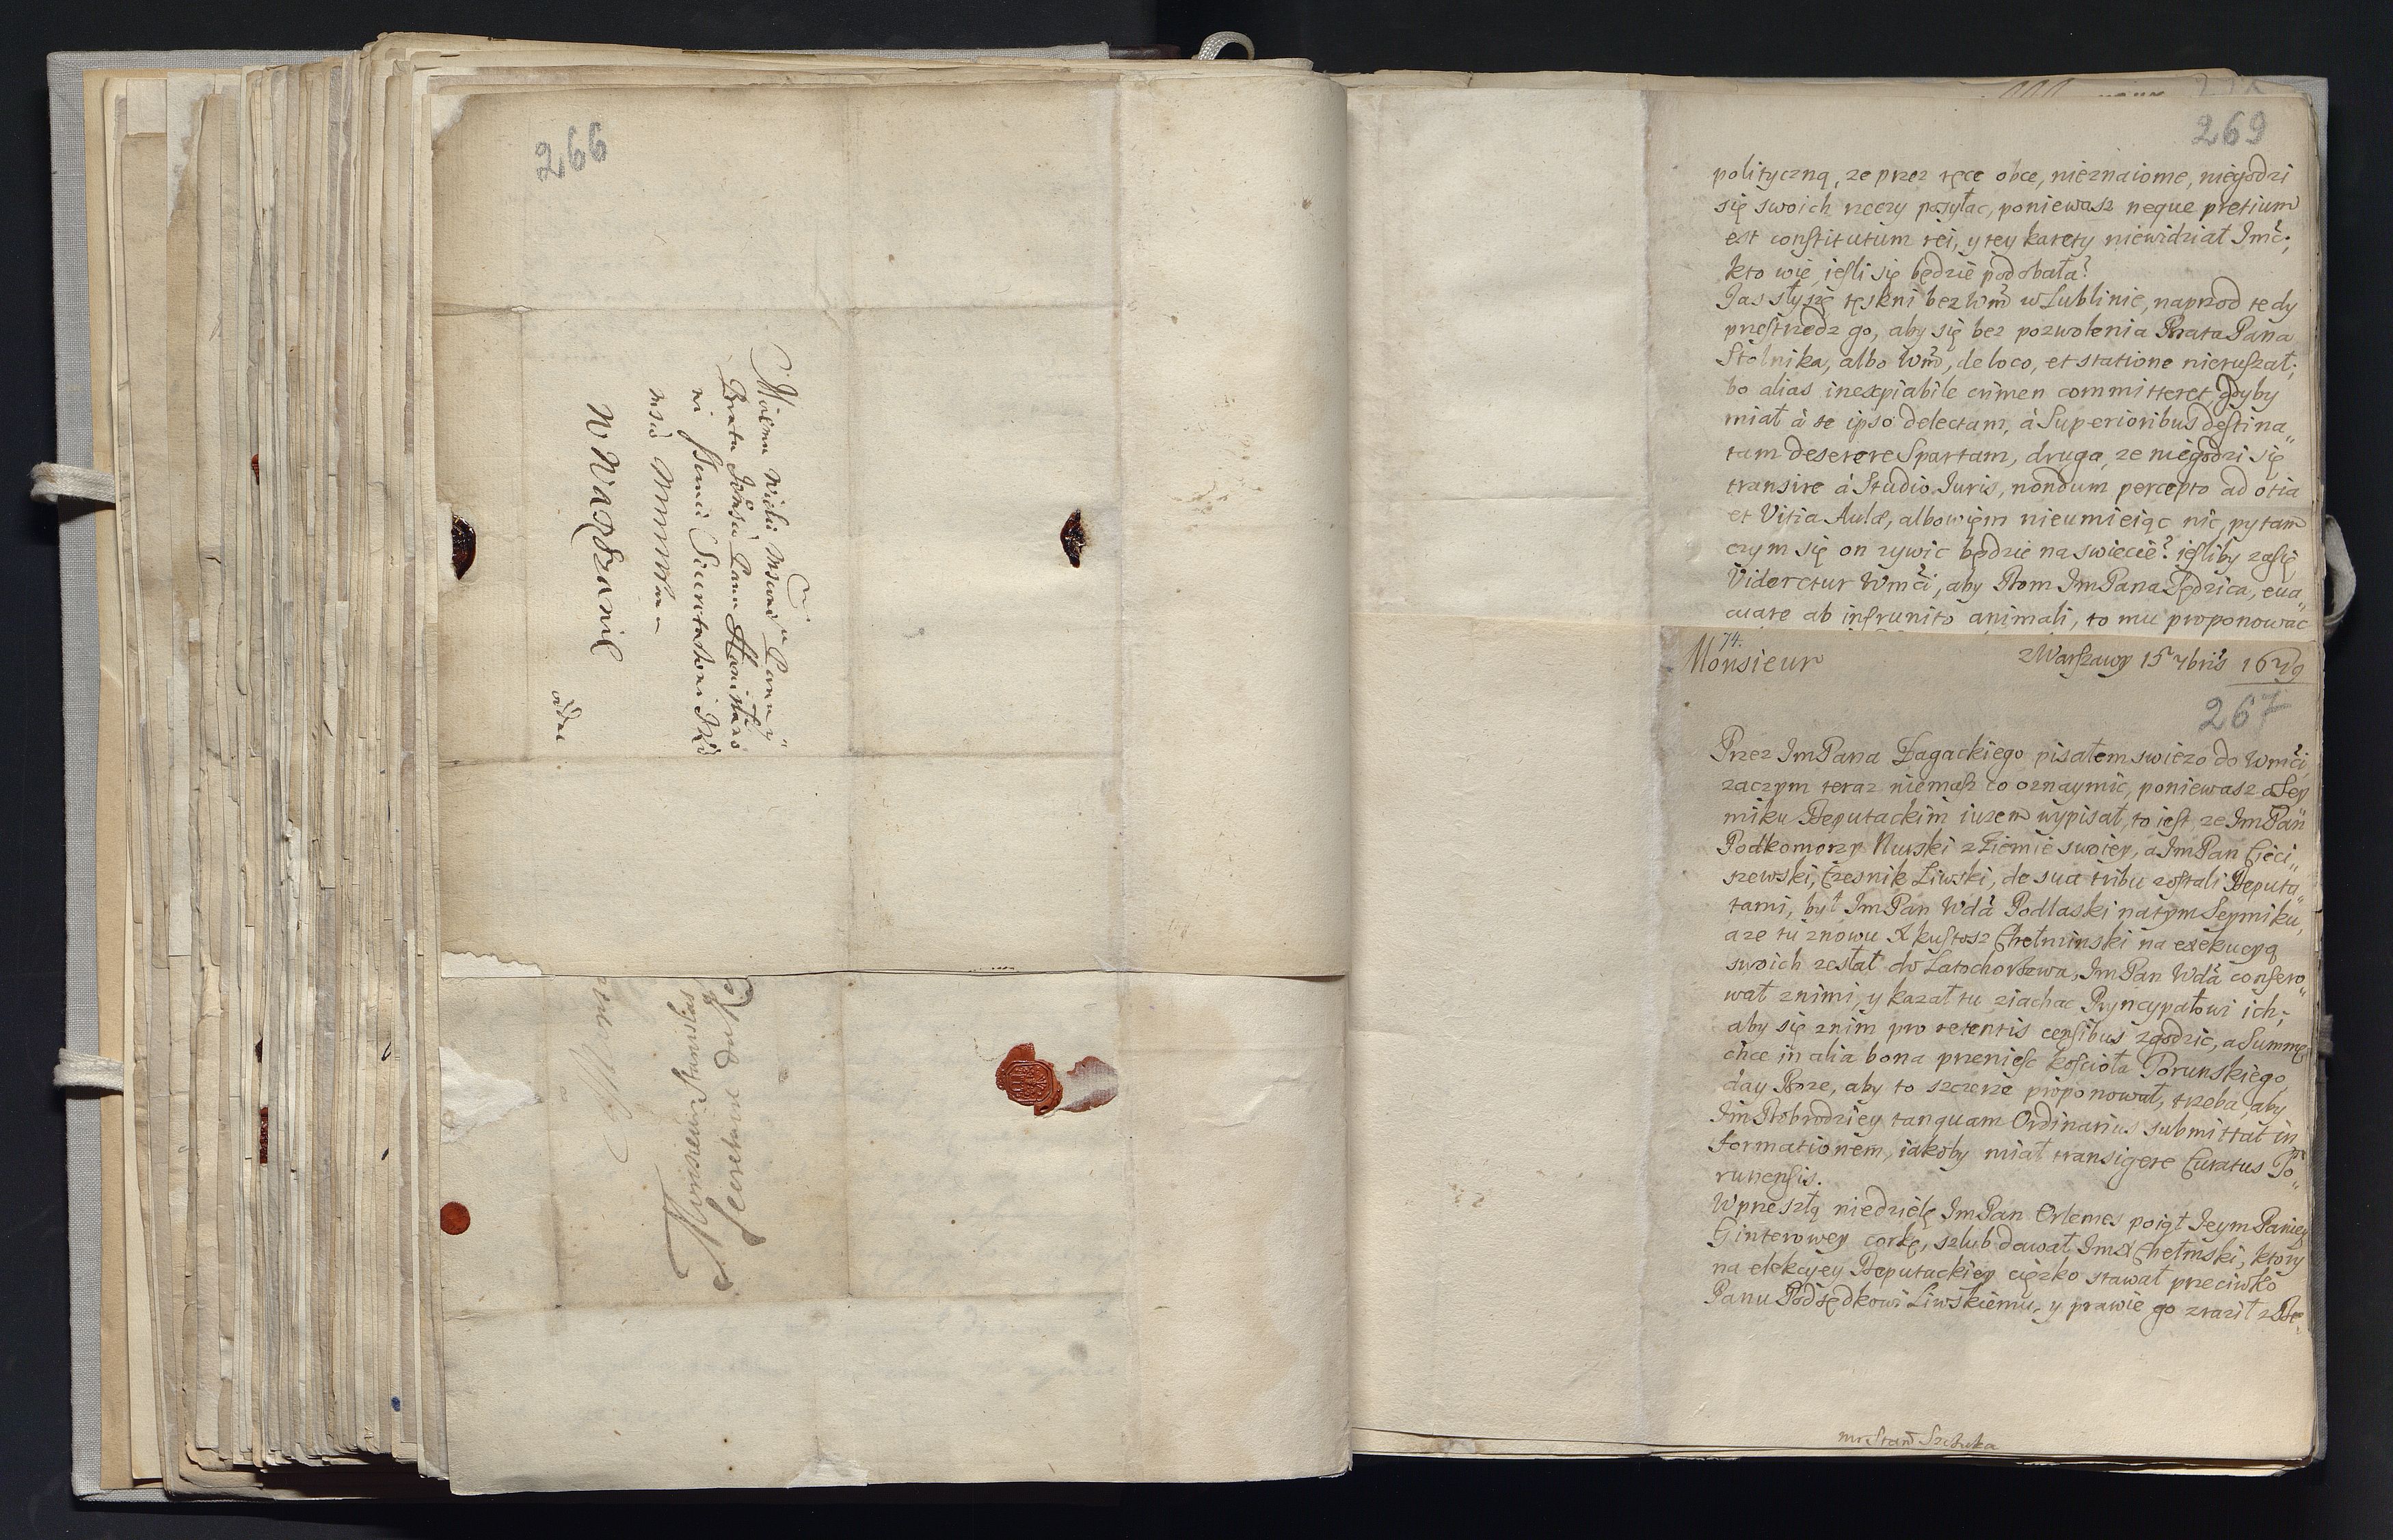 266
Memu Wielce Mśćwemu Panu y
Bratu Jegomści Panu Stanisławo
wi Sczuce Secretarzowi JKr
mści
w Warszawie
oddać
Monsieur Stanislas
Secretaire du Ro
269
polityczną, ze przez ręce obce, nieznaiome, niegodzi
się swoich rzeczy posyłac, poniewasz neque pretium
est constitutum rei, y tey karety niewidział Jmć;
kto wie, iesli się będzie podobała?
Jas słyszę tęskni bez Wmć w Lublinie, naprzod tedy
przestrzedz go, aby się bez pozwolenia Brata Pana
Stolnika, albo Wmć, de loco, et statione nieruszał;
bo alias inexpiabile crimen committeret, gdyby
miał à se ipso delectam, à Superioribus destina„
tam deserere Spartam, druga, ze niegodzi się
transire à Studio Juris, nondum percepto ad otia
et Vitia Aulæ, albowiem nieumieiąc nic, pytam
czym się on zywic będzie na swiecie? iesliby zasię
Videretur Wmći, aby Dom Jm Pana Sędzica, eua„
cuare ab infrunito animali, to mu proponowac
74.
Monsieur
z Warszawy 15 7bris 1679
267
Przez Jm Pana Łagackiego pisałem swiezo do Wmći,
zaczym teraz niemasz co oznaymic, poniewasz o Sey
miku Deputackim iuzem wypisał, to iest, ze Jm Pan
Podkomorzy Nurski z Ziemie swoiey, a Jm Pan Cieci„
szewski, Czesnik Liwski, de sua tribu zostali Deputa„
tami, był Jm Pan Wdà Podlaski na tym Seymiku,
a ze tu znowu X kustosz Chełminski na exekucyą
swoich zesłał do Latochorzewa, Jm Pan Wdà confero„
wał z nimi, y kazał tu ziachac Pryncypałowi ich;
aby się z nim pro retentis censibus zgodzic, a Summę
chce in alia bona przeniesc koscioła Porunskiego,
day Boze, aby to szczerze proponował, trzeba, aby
Jm Dobrodziey tanquam Ordinarius submittat in
formationem, iakoby miał transigere Curatus Po„
runensis.
W przeszłą niedzielę Jm Pan Orlemes poiął Jeym Paniey
Ginterowey corkę, szlub dawał Jmx Chełmski, ktory
na elekcyey Deputackiey cięzko stawał przeciwko
Panu Podsędkowi Liwskiemu, y prawie go zraził z De„
mr Stan Szczuka